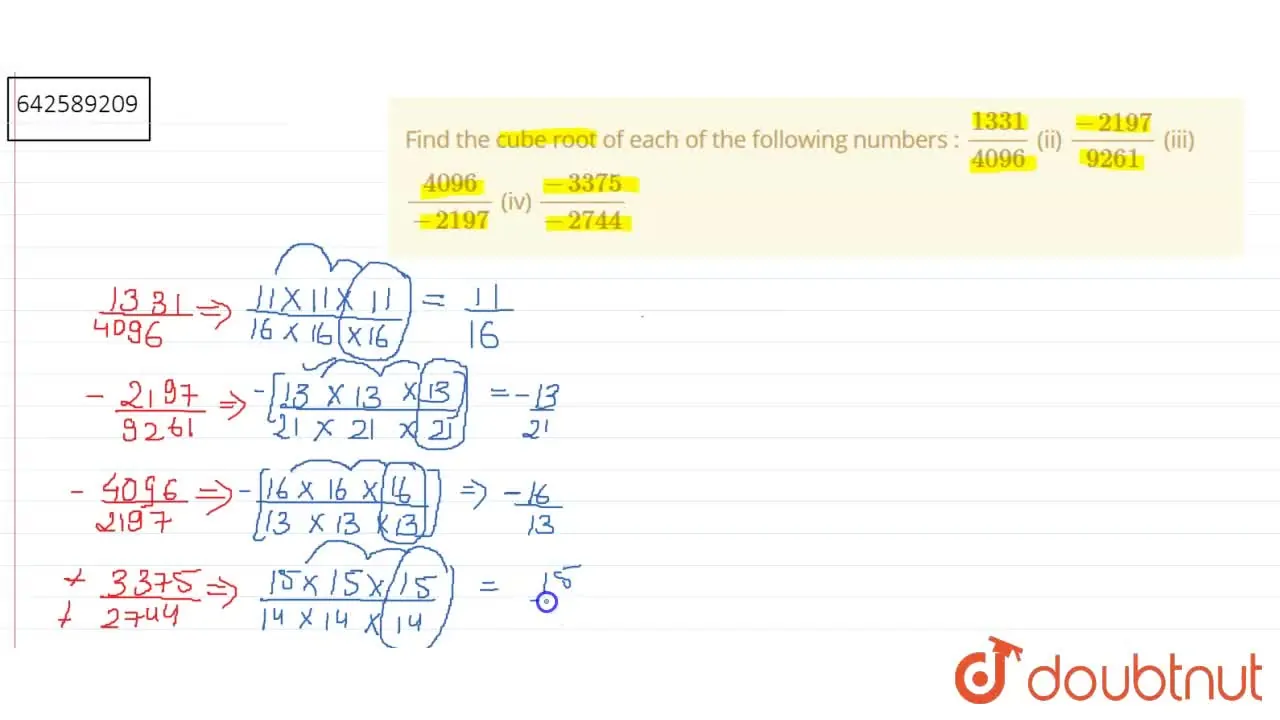 642589209
Find the cube root of each of the following numbers : 1331/4096 (ii) -2197/9261 (iii)
4096/-2197 (iv) -3375/-2744
1331/4096 ⇒ 11 × 11 × 11 / 16 × 16 × 16 = 11/16
- 2197/9261 ⇒ -[13 × 13 × 13 / 21 × 21 × 21 = -13/21
- 4096/2197 ⇒ -[16 × 16 × 16 / 13 × 13 × 13] ⇒ -16/13
+ 3375/+ 2744 ⇒ 15 × 15 × 15 / 14 × 14 × 14 ] = 15
doubtnut